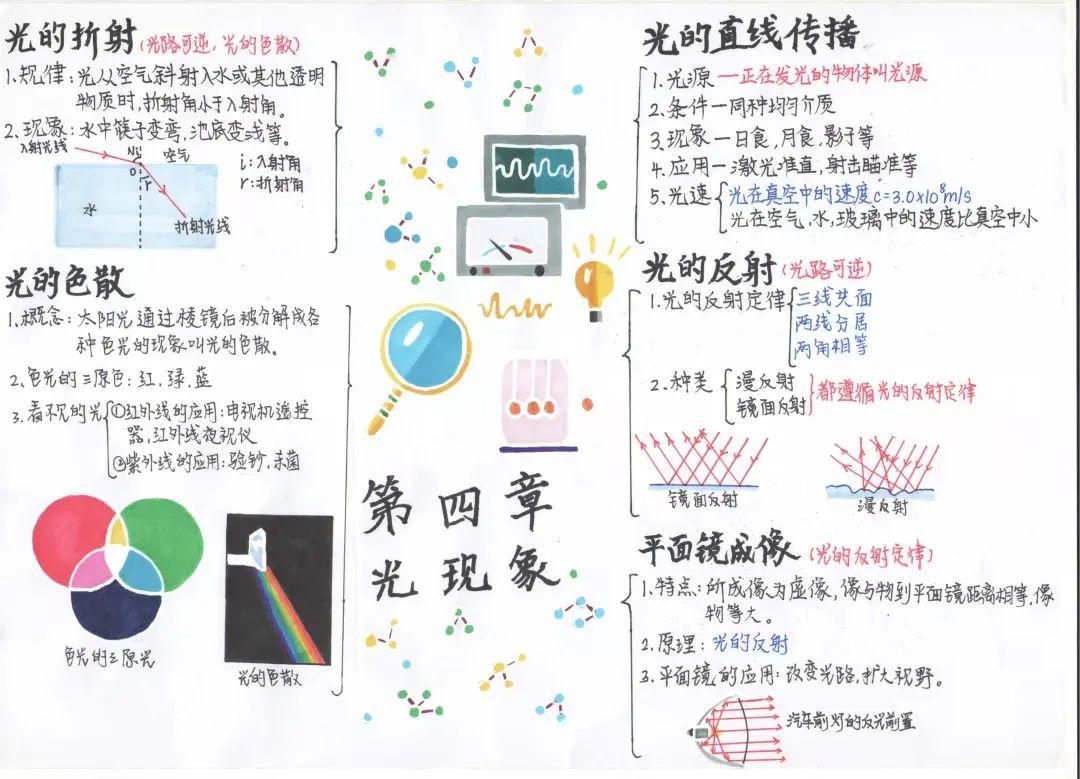 光的折射(光路可逆,光的色散)
1.规律:光从空气斜射入水或其他透明
物质时,折射角小于入射角。
2.现象:水中筷子变弯,池底变浅等。
入射光线
N
空气
i:入射角
i
O
r
r:折射角
水
折射光线
光的色散
1.概念:太阳光通过棱镜后被分解成各
种色光的现象叫光的色散。
2.色光的三原色:红,绿,蓝
3.看不见的光
①红外线的应用:电视机遥控
器,红外线夜视仪
②紫外线的应用:验钞,杀菌
色光的三原光
光的色散
第四章
光现象
光的直线传播
1.光源—正在发光的物体叫光源
2.条件—同种均匀介质
3.现象—日食,月食,影子等
4.应用—激光准直,射击瞄准等
5.光速
光在真空中的速度c=3.0×10⁸m/s
光在空气,水,玻璃中的速度比真空中小
光的反射(光路可逆)
1.光的反射定律
三线共面
两线分居
两角相等
2.种类
漫反射
镜面反射
都遵循光的反射定律
镜面反射
漫反射
平面镜成像(光的反射定律)
1.特点:所成像为虚像,像与物到平面镜距离相等,像
物等大。
2.原理:光的反射
3.平面镜的应用:改变光路,扩大视野。
汽车前灯的反光前置